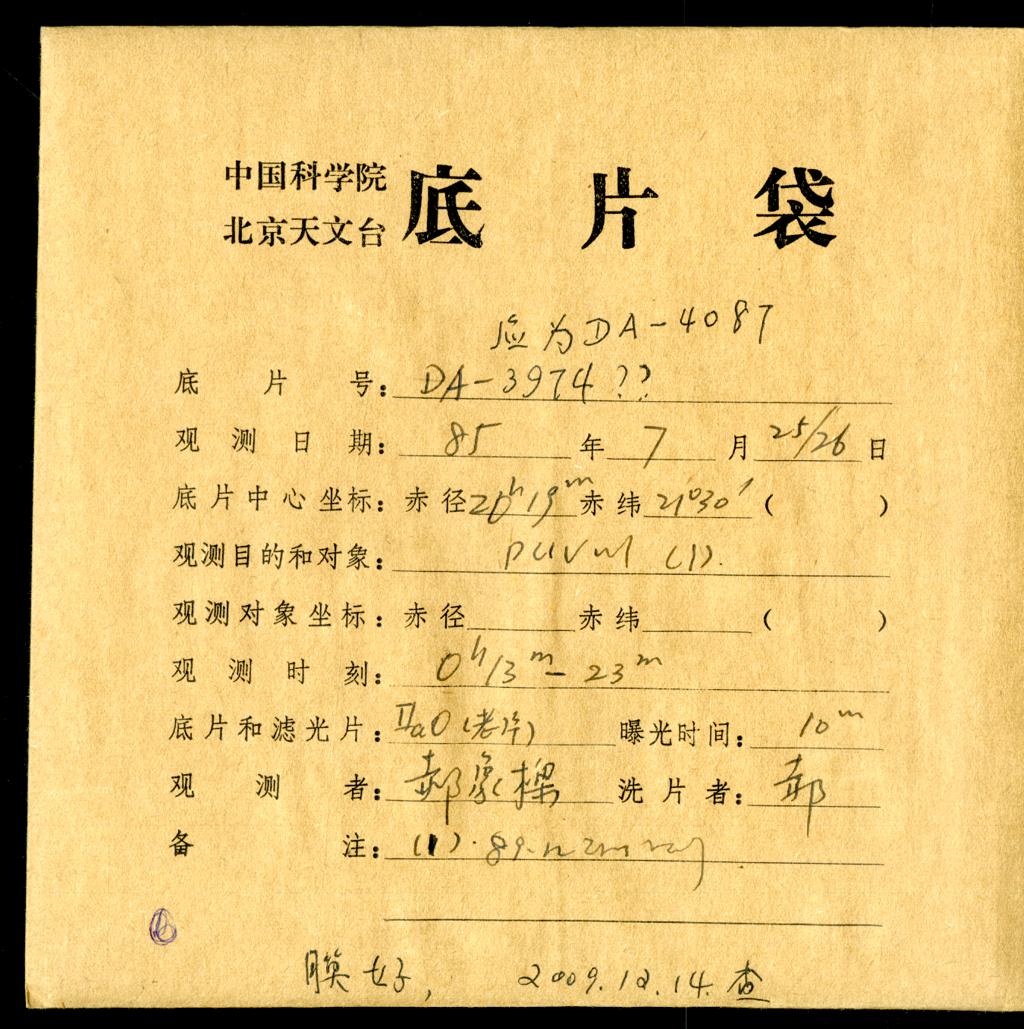 中国科学院
北京天文台 底片袋
应为DA-4087
底片号: DA-3974??
观测日期: 85年7月25/26日
底片中心坐标: 赤径20h19m赤纬21°30′( )
观测目的和对象: PUVul (1).
观测对象坐标: 赤径 赤纬 ( )
观测时刻: 0h13m-23m
底片和滤光片: IIaO(老片) 曝光时间: 10m
观测者: 郝象樑 洗片者: 郝
备注: (1).
膜好, 2009.12.14.查